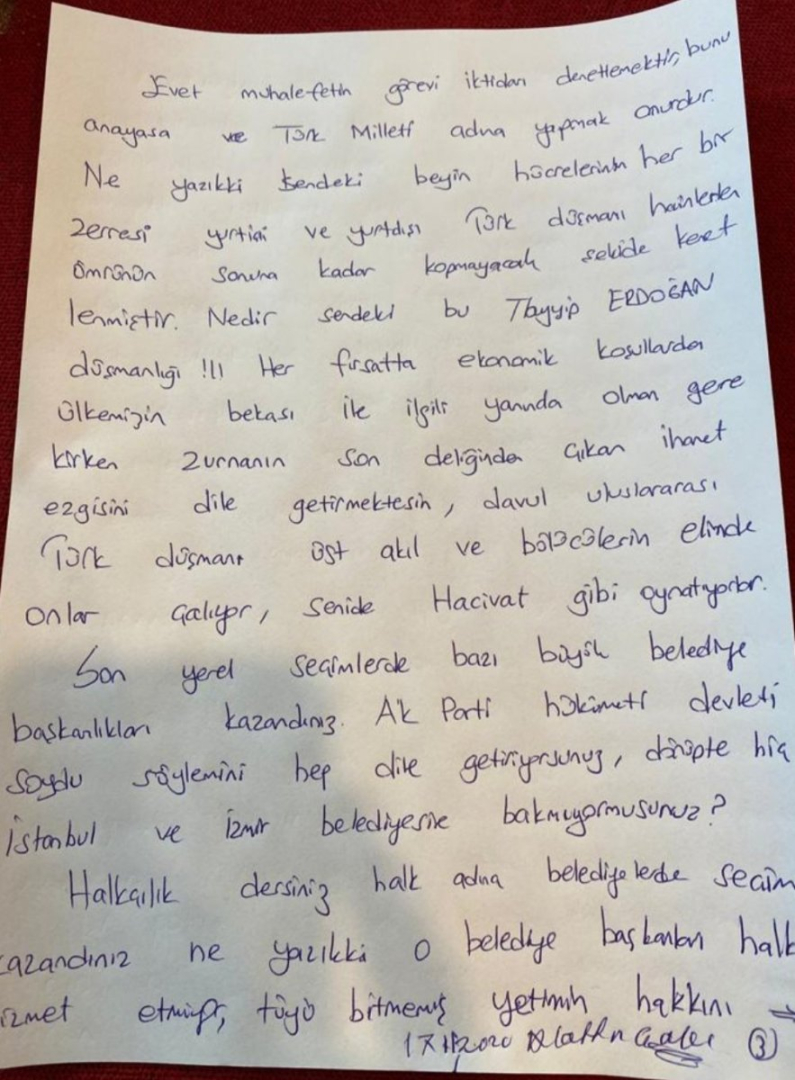 Evet muhalefetin görevi iktidarı denetlemektir, bunu
anayasa ve Türk Milleti adına yapmak onurdur.
Ne yazıkki sendeki beyin hücrelerinin her bir
zerresi yurtiçi ve yurtdışı Türk düşmanı hainlerden
ömrünün sonuna kadar kopmayacak şekilde keret
lenmiştir. Nedir sendeki bu Tayyip ERDOĞAN
düşmanlığı !!! Her fırsatta ekonomik koşullarda
ülkemizin bekası ile ilgili yanında olman gere
kirken zurnanın son deliğinden çıkan ihanet
ezgisini dile getirmektesin, davul uluslararası
Türk düşmanı üst akıl ve bölücülerin elinde
onlar çalıyor, senide Hacivat gibi oynatıyorlar.
Son yerel seçimlerde bazı büyük belediye
başkanlıkları kazandınız. AK Parti hükümeti devleti
soydu söylemini hep dile getiriyorsunuz, dönüpte hiç
İstanbul ve İzmir belediyesine bakmıyormusunuz?
Halkçılık dersiniz halk adına belediyelerde seçim
kazandınız ne yazıkki o belediye başkanları halk
izmet etmiyor, tüyü bitmemiş yetimin hakkını →
2020 3